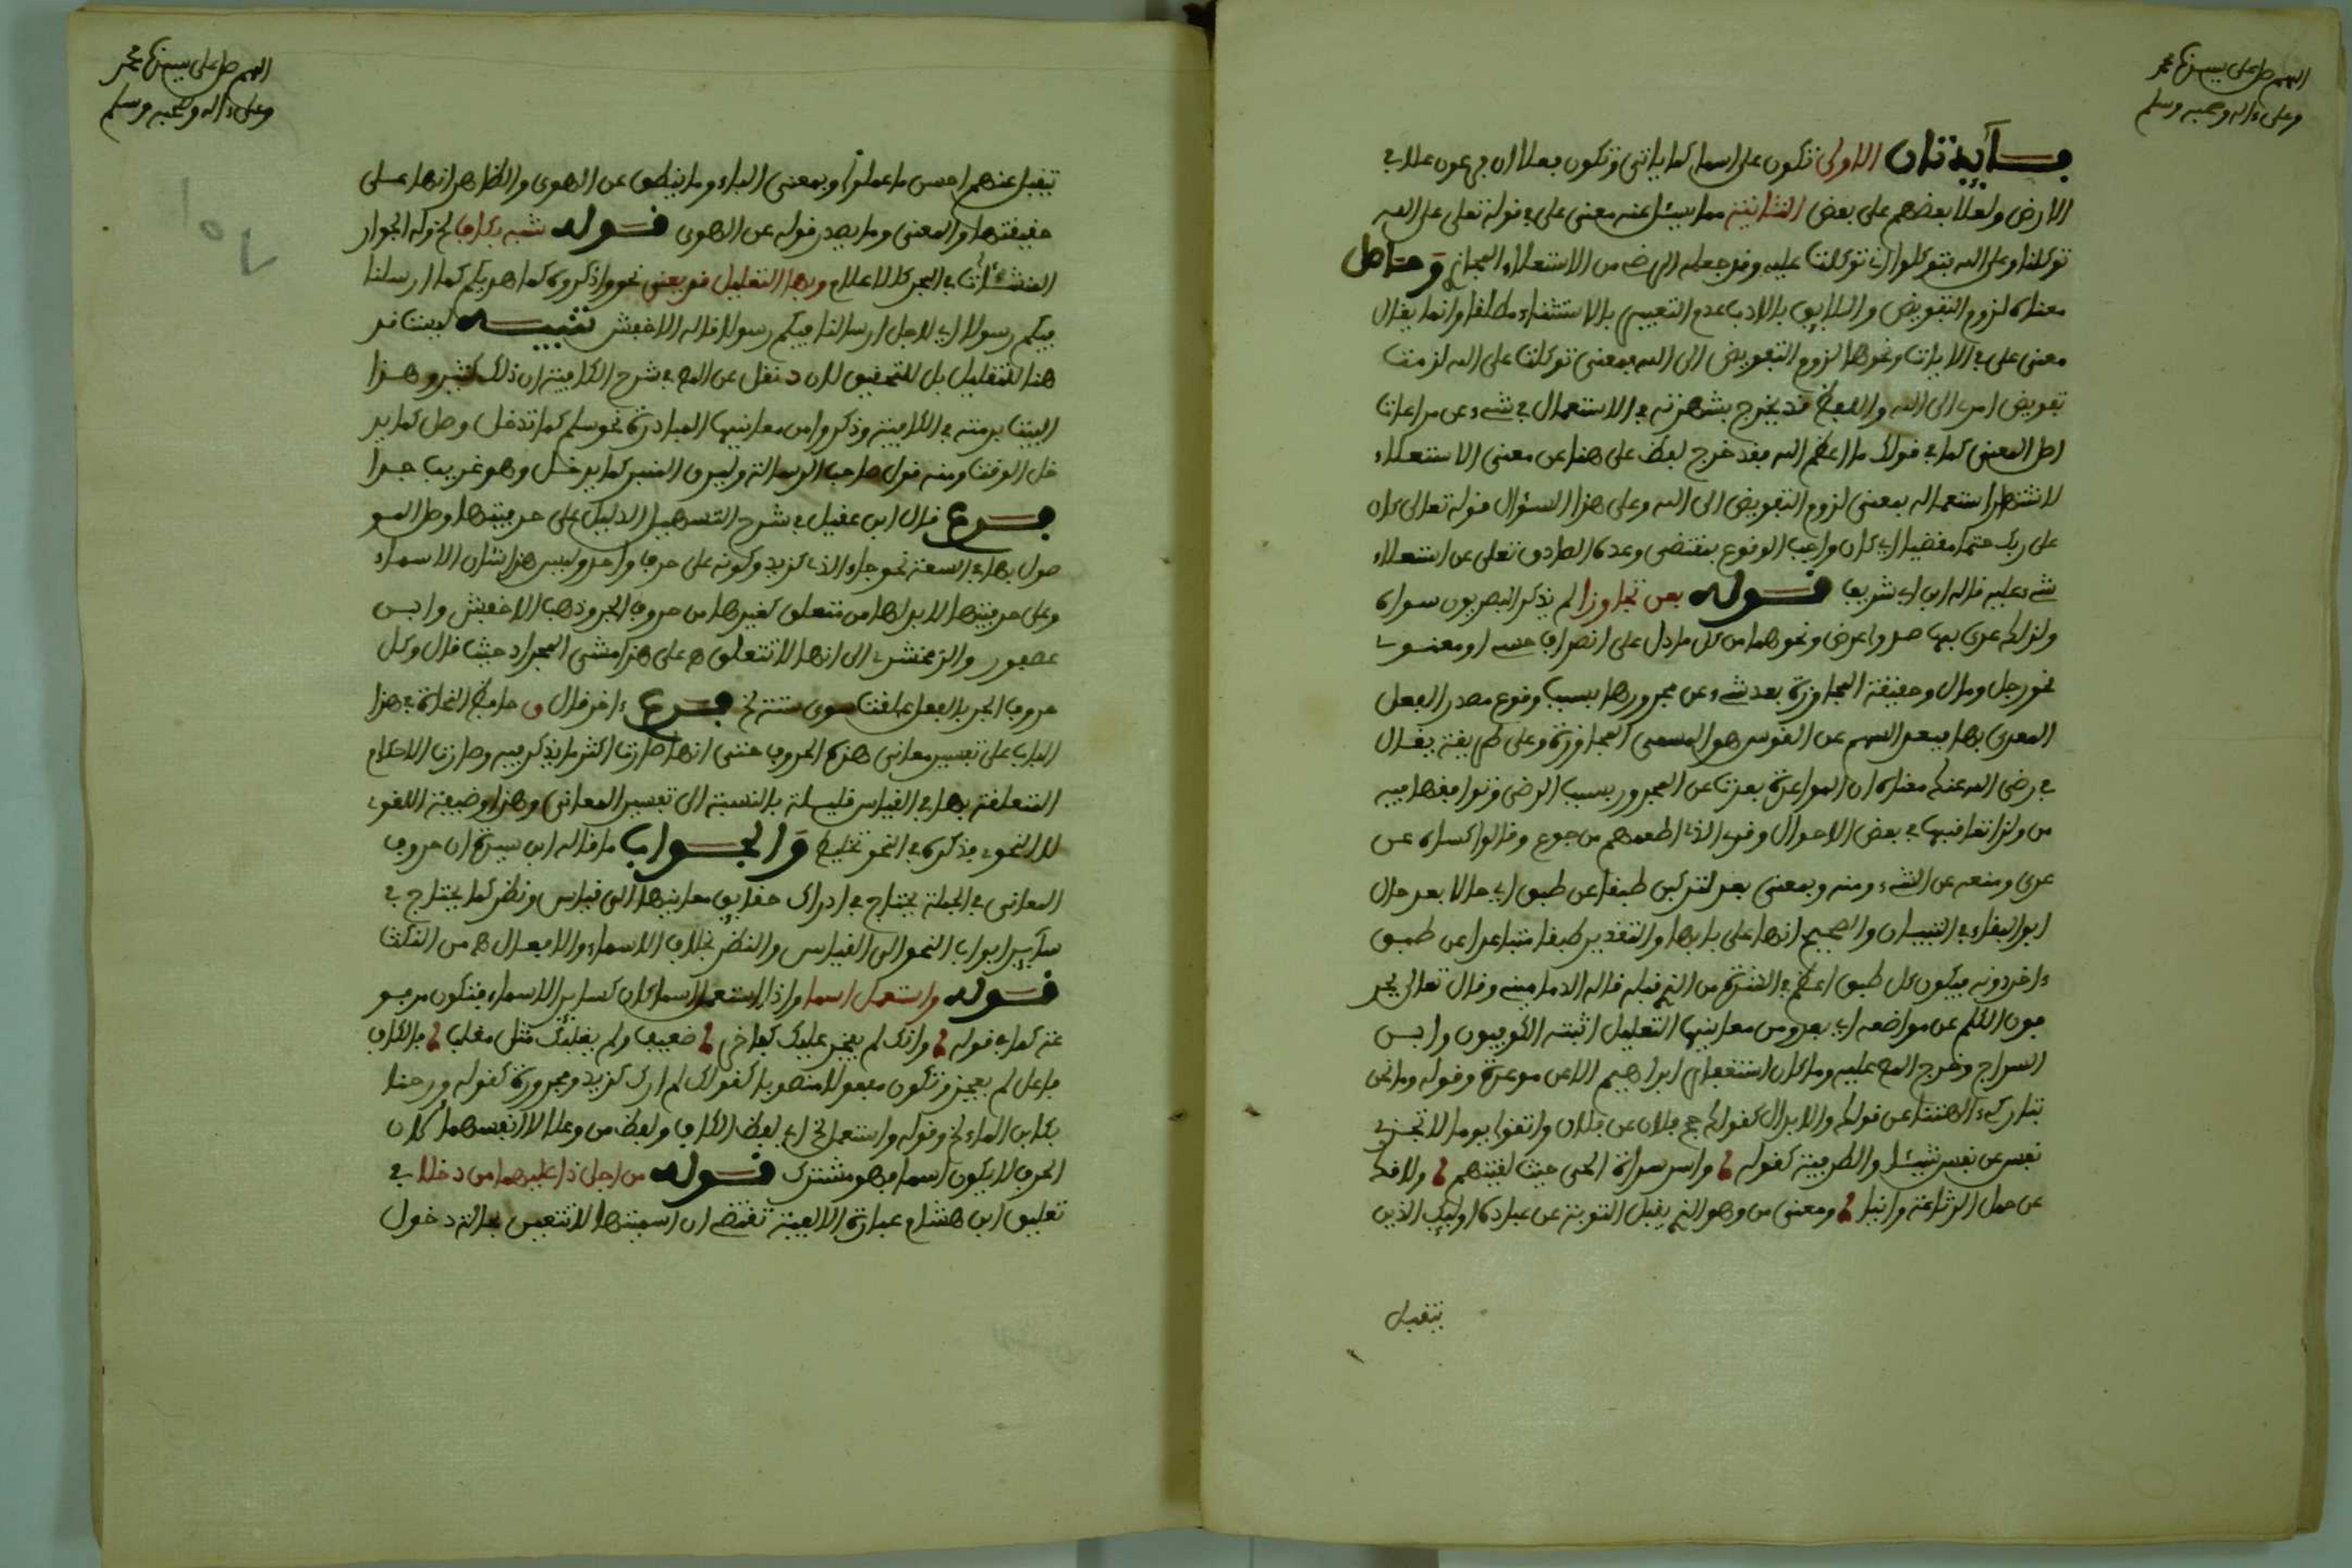 اللهم صل على سيدنا محمد
وعلى ءاله وصحبه وسلم
فائدتان الاولى تكون على اسما كما ياتي وتكون فعلا ان فرعون علا في
الارض ولعلا بعضهم على بعض الثانية مما يسئل عنه معنى على في قوله تعلى على الله
توكلنا وعلى الله فتوكلوا توكلت عليه وقد جعله الرضى من الاستعلاء المجازي وحاصل
معناه لزوم التفويض واللايق بالادب عدم التعبير بالاستعلاء مطلقا وانما يقال
معنى على في الايات ونحوها لزوم التفويض الى الله فمعنى توكلت على الله لزمت
تفويض امري الى الله واللفظ قد يخرج بشهرته في الاستعمال في شيء عن مراعات
اصل المعنى كما في قولك ما اعظم الله فقد خرج لفظ على هنا عن معنى الاستعلاء
لاشتهار استعماله بمعنى لزوم التفويض الى الله وعلى هذا السؤال قوله تعالى كان
على ربك حتما مقضيا اي كان واجب الوقوع بمقتضى وعده الصادق تعلى عن استعلاء
شيء عليه قاله ابن ابي شريف قوله بعن تجاوزا لم يذكر البصريون سواه
ولذلك عدي بها صد واعرض ونحوهما من كل ما دل على انصراف حسي او معنوي
نحو رحل ومال وحقيقة المجاوزة بعد شيء عن مجرورها بسبب وقوع مصدر الفعل
المعدى بها فبعد السهم عن القوس هو المسمى المجاوزة وعلى طريقة يقال
في رضي الله عنك معناه ان المواخذة بعدت عن المجرور بسبب الرضى وتوافقها فيه
من ولذا تعاقبها في بعض الاحوال وقرئ الذي اطعمهم من جوع وقالوا كساه عن
عري ومنعه عن الشيء ومنه وبمعنى بعد لتركبن طبقا عن طبق اي حالا بعد حال
ابو البقاء في التبيان والصحيح انها على بابها والتقدير طبقا متباعدا عن طبق
ءاخر دونه فيكون كل طبق اعظم في الشدة من الذي قبله قاله الدمامينى وقال تعالى يحر
فون الكلم عن مواضعه اي بعد ومن معانيها التعليل اثبته الكوفيون وابن
السراج وخرج المص عليه وما كان استغفار ابراهيم الا عن موعدة وقوله وما نحن
بتاركي ءالهتنا عن قولك والابدال كقولك حج فلان عن فلان واتقوا يوما لا تجزي
نفس عن نفس شيئا والظرفية كقوله وآس سراة الحي حيث لقيتهم ولا تك
عن حمل الرباعة وانيا ومعنى من وهو الذي يقبل التوبة عن عباده اوليك الذين
يتقبل
اللهم صل على سيدنا محمد
وعلى ءاله وصحبه وسلم
يتقبل عنهم احسن ما عملوا وبمعنى الباء وما ينطق عن الهوى والظاهر انها على
حقيقتها والمعنى وما يصدر قوله عن الهوى قوله شبه بكاف نحو له الجوار
المنشئات في البحر كالاعلام وبها التعليل قد يعنى نحو واذكروه كما هديكم كما ارسلنا
فيكم رسولا اي لاجل ارسالنا فيكم رسولا قاله الاخفش تنبيه ليست قد
هنا للتقليل بل للتحقيق لان د نقل عن المص في شرح الكافية ان ذلك كثير وهذا
البيت برمته في الكافية وذكروا من معانيها المبادرة نحو سلم كما تدخل وصل كما يد
خل الوقت ومنه قول صاحب الرسالة وليرق المنبر كما يدخل وهو غريب جدا
فرع قال ابن عقيل في شرح التسهيل الدليل على حرفيتها وصل المو
صول بها في السعة نحو جاء الذي كزيد وكونه على حرف واحد وليس هذا شان الاسماء
وعلى حرفيتها لا بد لها من متعلق كغيرها من حروف الجر وذهب الاخفش وابن
عصفور والزمخشري الى انها لا تتعلق وعلى هذا مشى المجراد حيث قال وكل
حروف الجر بالفعل علقت سوى ستة فرع ءاخر قال ق حافظ النحاة في هذا
الباب على تفسير معاني هذه الحروف حتى انها صارت اكثر ما يذكر فيه وصارت الاحكام
المتعلقة بها في القياس قليلة بالنسبة الى تفسير المعاني وهذا وضيفة اللغوي
لا النحوي فذكره في النحو تخليط والجواب ما قاله ابن سيده ان حروف
المعاني في الجملة يحتاج في ادراك حقايق معانيها الى قياس ونظر كما يحتاج في
ساير ابواب النحو الى القياس والنظر بخلاف الاسماء والافعال من النكت
قوله واستعمل اسما واذا استعمل اسما كان كساير الاسماء فتكون مرفو
عة كما في قوله وانك لم يفخر عليك كفاخر ضعيف ولم يغلبك مثل مغلب فالكاف
فاعل لم يفخر وتكون مفعولا منصوبا كقولك لم ار كزيد ومجرورة كقوله ورحنا
بكابن الماء وقوله واستعمل اي لفظ الكاف ولفظ عن وعلى لا انفسهما لان
الحرف لا يكون اسما فهو مشترك قوله من اجل ذا عليهما من دخلا في
تعليق ابن هشام عبارة الالفية تقتضي ان اسميتها لا تتعين بحالة دخول